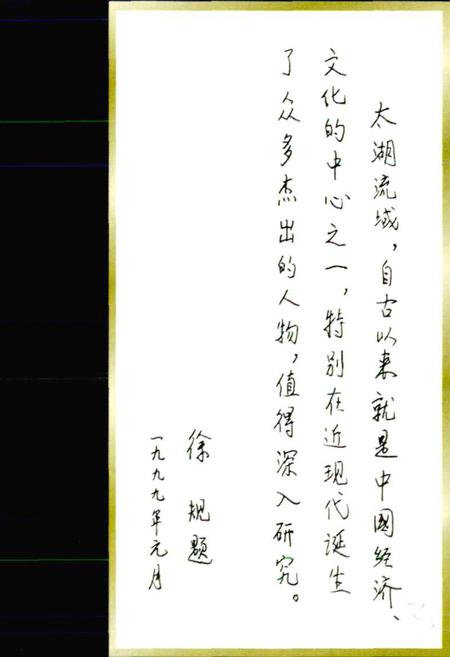 太湖流域，自古以来就是中国经济、
文化的中心之一，特别在近现代诞生
了众多杰出的人物，值得深入研究。
徐规题
一九九九年元月